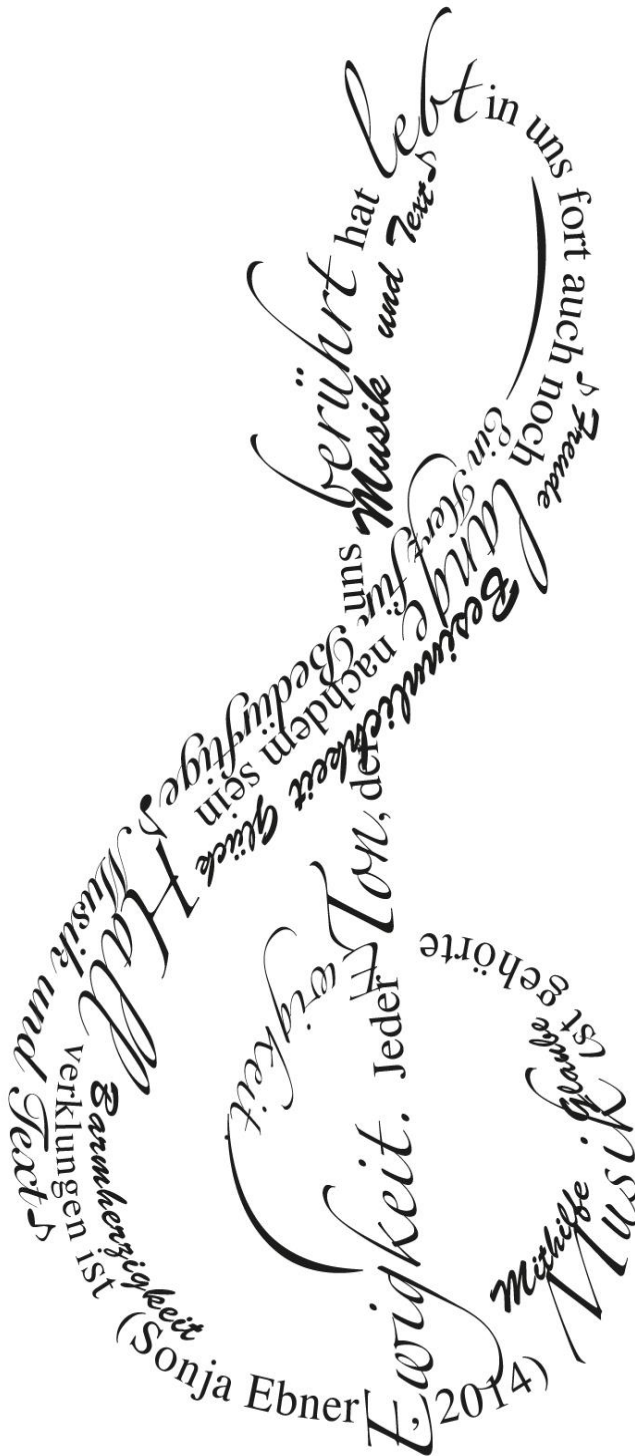 Musik ist gehörte
Ewigkeit.
Ewigkeit. Jeder Ton, der uns berührt hat lebt in uns fort auch noch lange nachdem sein Hall verklungen ist (Sonja Ebner, 2014)
Musik und Text♪
♪ Freude
Ein Herz für Bedürftige ♪
Besinnlichkeit Glück
Musik und Text♪
Barmherzigkeit
Mithilfe